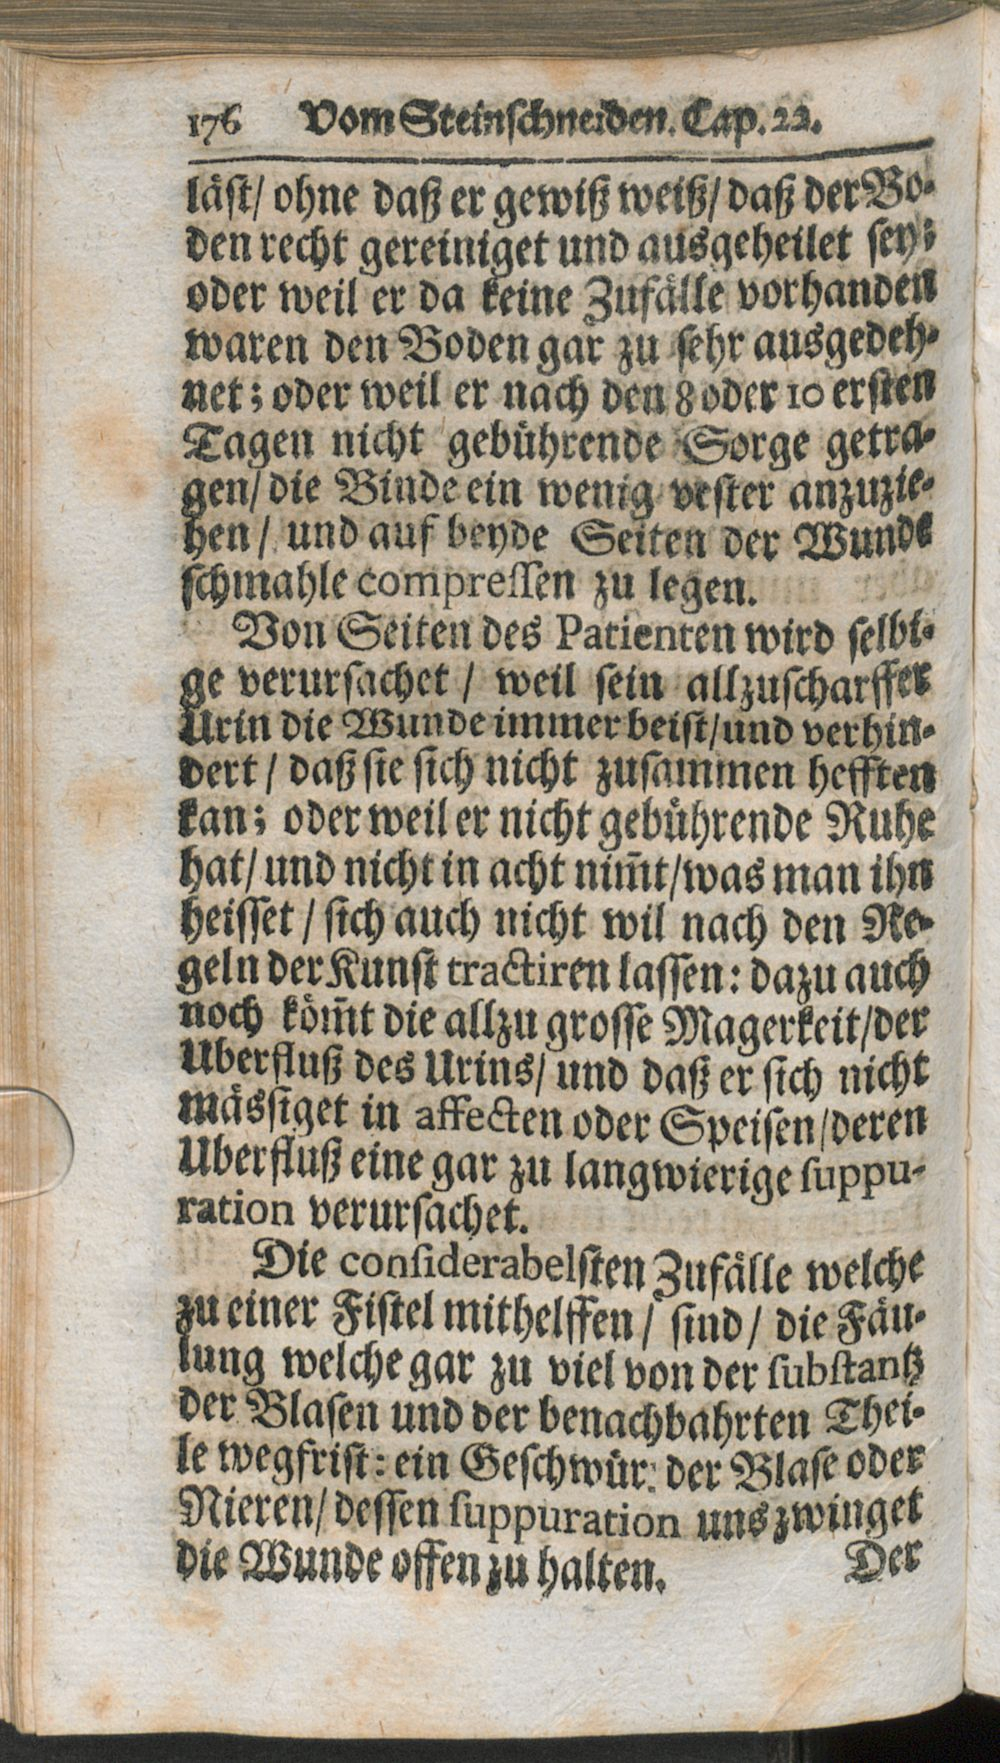 176 Vom Steinschneiden. Cap. 22.
läst/ ohne daß er gewiß weiß/ daß der Bo-
den recht gereiniget und ausgeheilet sey;
oder weil er da keine Zufälle vorhanden
waren den Boden gar zu sehr ausgedeh-
net; oder weil er nach den 8 oder 10 ersten
Tagen nicht gebührende Sorge getra-
gen/ die Binde ein wenig vester anzuzie-
hen/ und auf beyde Seiten der Wunde
schmahle compressen zu legen.
Von Seiten des Patienten wird selbi-
ge verursachet/ weil sein allzuscharffer
Urin die Wunde immer beist/ und verhin-
dert/ daß sie sich nicht zusammen hefften
kan; oder weil er nicht gebührende Ruhe
hat/ und nicht in acht nim̃t/ was man ihn
heisset/ sich auch nicht wil nach den Re-
geln der Kunst tractiren lassen: dazu auch
noch köm̃t die allzu grosse Magerkeit/ der
Uberfluß des Urins/ und daß er sich nicht
mässiget in affecten oder Speisen/ deren
Uberfluß eine gar zu langwierige suppu-
ration verursachet.
Die considerabelsten Zufälle welche
zu einer Fistel mithelffen/ sind/ die Fäu-
lung welche gar zu viel von der substantz
der Blasen und der benachbahrten Thei-
le wegfrist: ein Geschwür: der Blase oder
Nieren/ dessen suppuration uns zwinget
die Wunde offen zu halten. Der